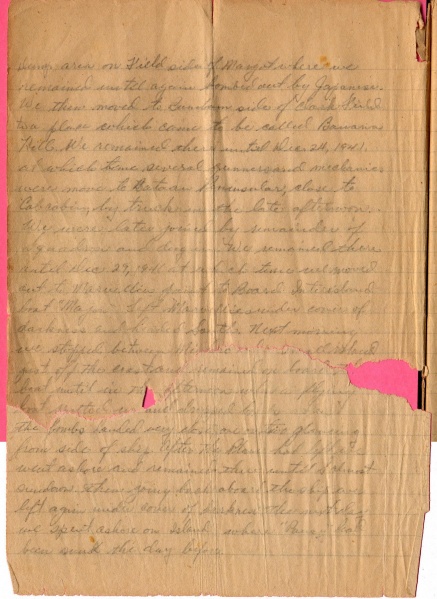 area on Field side of Margot where we
remained until again bombed out by Japanese.
We then moved to side of Clark Field
to a place which came to be called Banana
Hill. We remained there until Dec 24, 1941.
at which time several gunners and mechanics
were move to Bataan Peninsular, close to
Cabcaben, by trucks in the late afternoon.
We were later joined by remainder of
Squadron and dug in. We remained there
until Dec 29, 1941 at which time we moved
out to Mariveles to Board Interisland
boat "Mayan" left Mariveles under cover of
darkness and the Next morning
we stopped between
just off the coast and remained on board
boat until in the afternoon when a flying
boat and
the bombs landed very close one
from side of ship After the Plane had left we
went ashore and remained there until almost
sundown then going back aboard the ship we
left again under cover of darkness the next day
we spent ashore on Island where
been sunk the day before